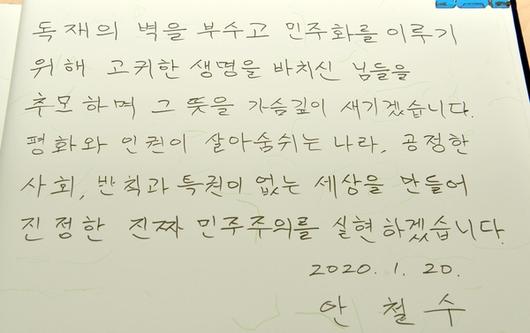 독재의 벽을 부수고 민주화를 이루기
위해 고귀한 생명을 바치신 님들을
추모하며 그 뜻을 가슴깊이 새기겠습니다.
평화와 인권이 살아숨쉬는 나라, 공정한
사회, 반칙과 특권이 없는 세상을 만들어
진정한 진짜 민주주의를 실현하겠습니다.
2020. 1. 20.
안 철 수